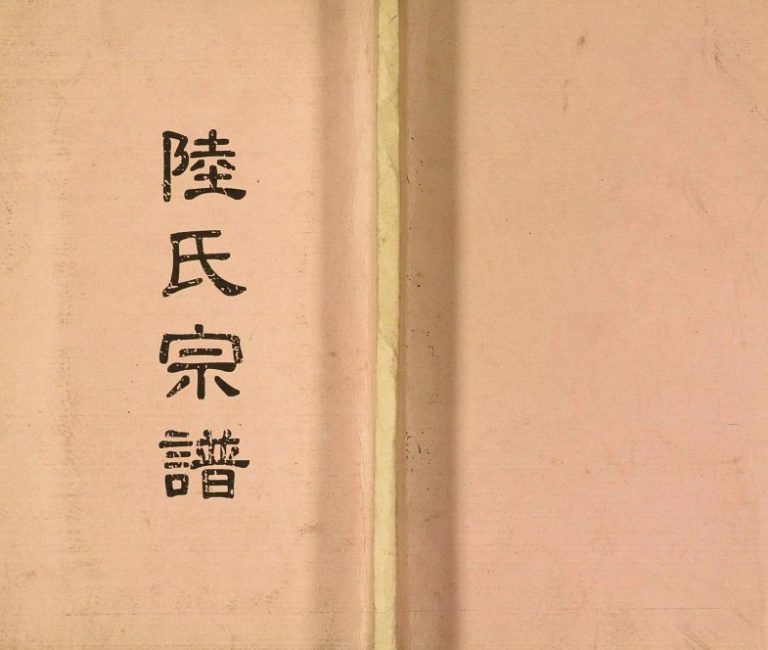 陸氏宗譜